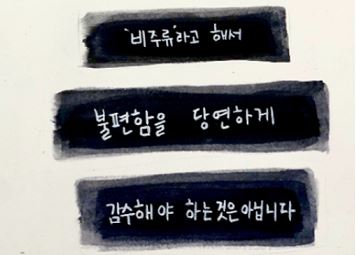 '비주류'라고 해서
불편함을 당연하게
감수해야 하는것은아닙니다